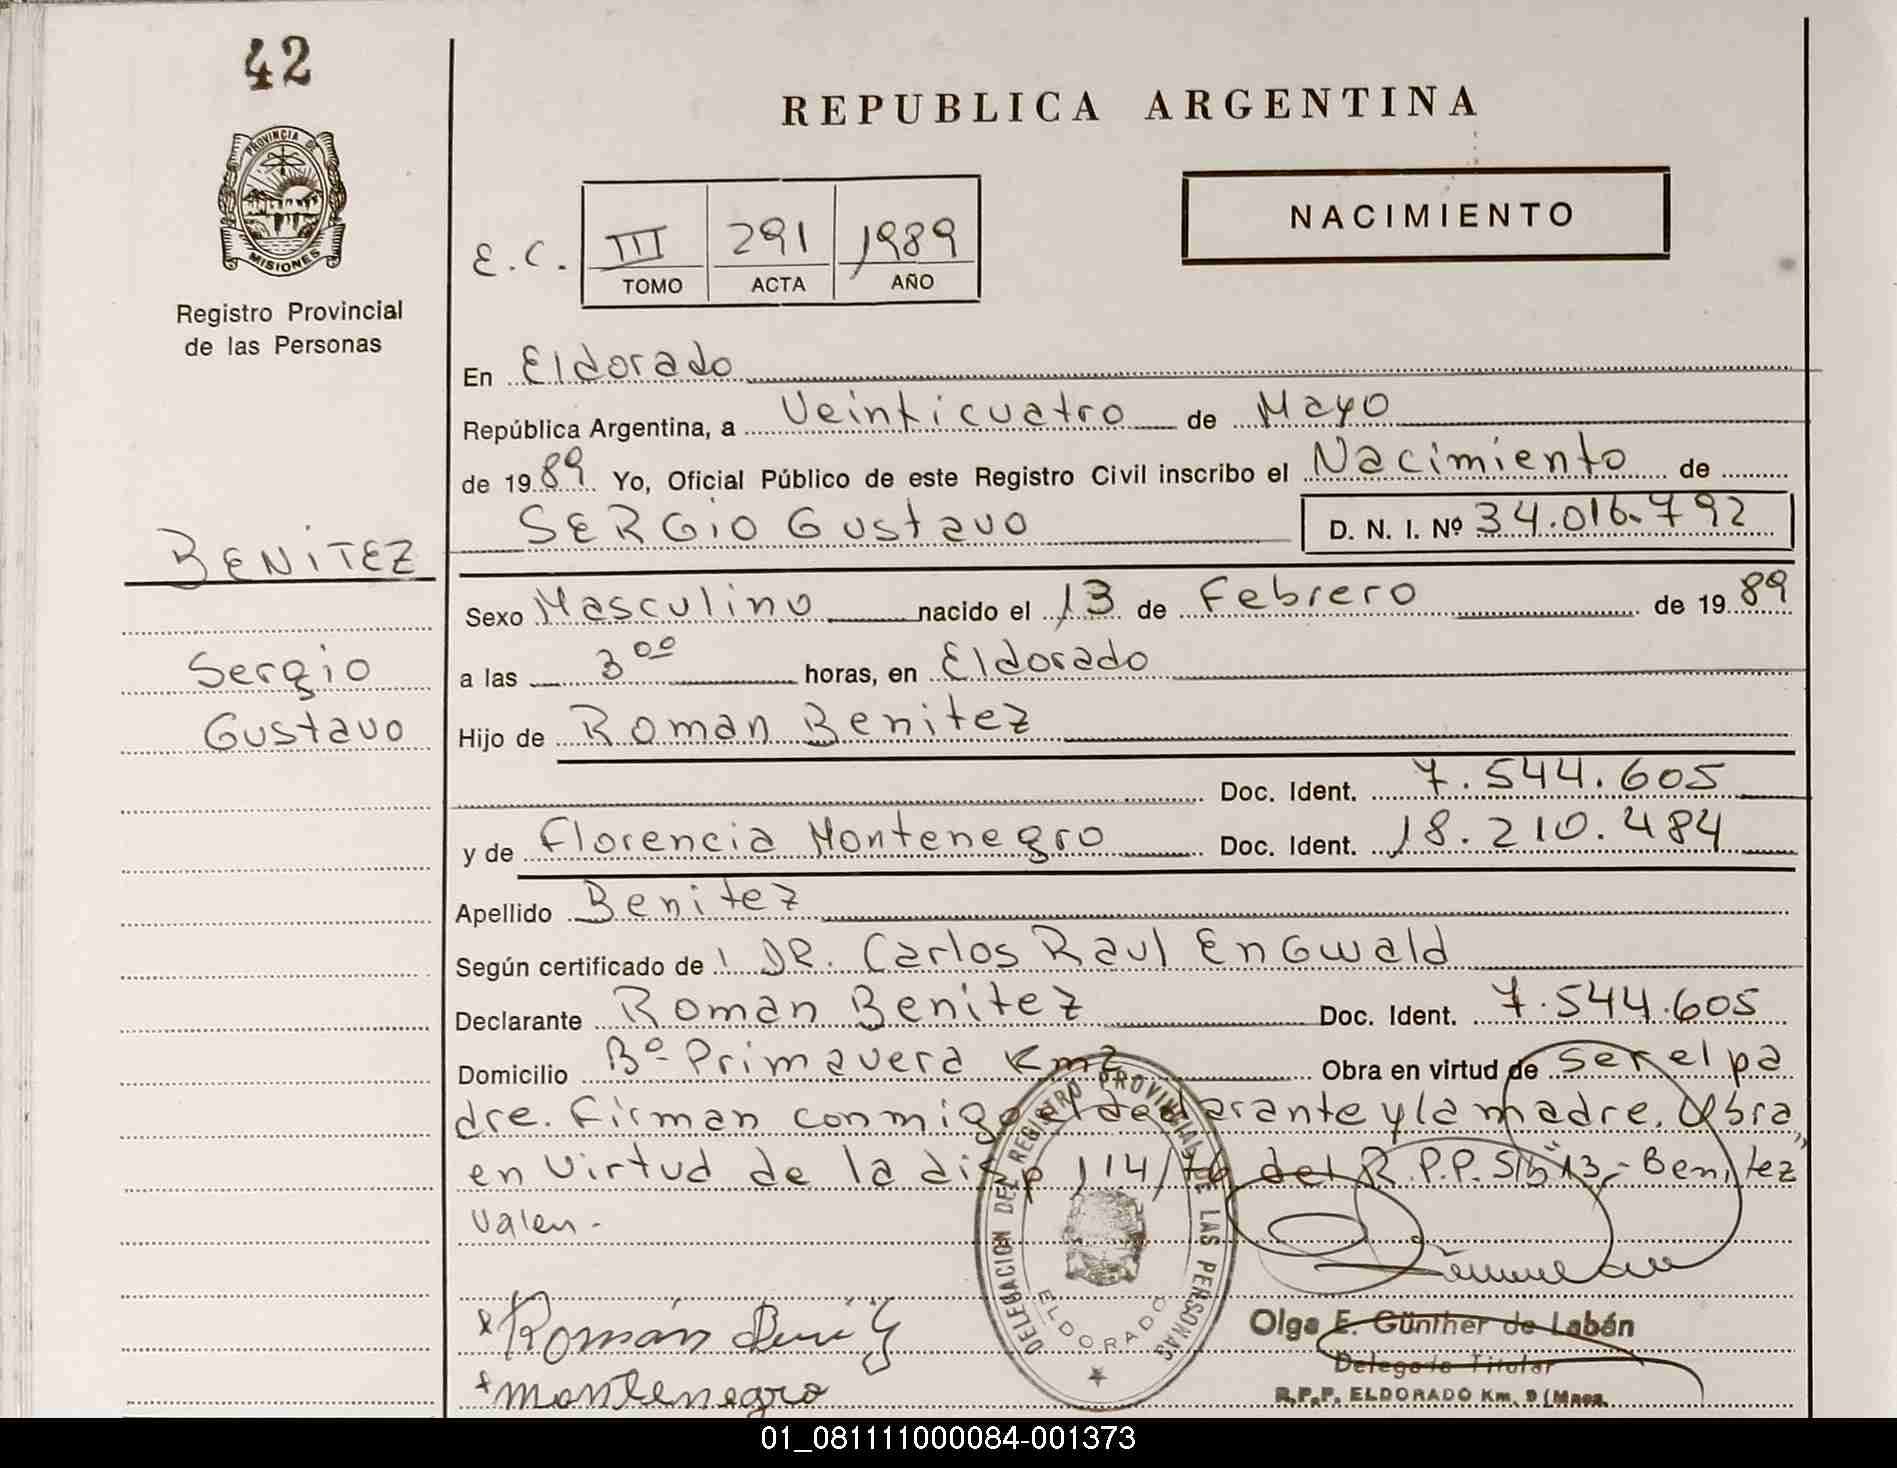 42
REPUBLICA ARGENTINA
PROVINCIA DE
MISIONES
Registro Provincial
de las Personas
NACIMIENTO
E.C. III 291 1989
TOMO ACTA AÑO
En Eldorado
República Argentina, a Veinticuatro de Mayo
de 1989 Yo, Oficial Público de este Registro Civil inscribo el Nacimiento de
SERGiO GUStavo D. N. I. Nº 34.016.792
BENITEZ
Sergio
Gustavo
Sexo Masculino nacido el 13 de Febrero de 1989
a las 3 00 horas, en Eldorado
Hijo de Roman Benitez
Doc. Ident. 7.544.605
y de Florencia Montenegro Doc. Ident. 18.210.484
Apellido Benitez
Según certificado de DR. Carlos Raul EnGwald
Declarante Roman Benitez Doc. Ident. 7.544.605
Domicilio Bº Primavera Km2 Obra en virtud de ser el pa
dre. Firman conmigo el declarante y la madre. Obra
en virtud de la disp 114/76 del R.P.P. S/b "13,- Benitez"
Valen.-
DELEGACION DEL REGISTRO PROVINCIAL DE LAS PERSONAS
ELDORADO
Román Benitez
montenegro
Olga E. Günther de Labán
Delegada Titular
R.P.P. ELDORADO Km. 9 (Mnes.
01_081111000084-001373